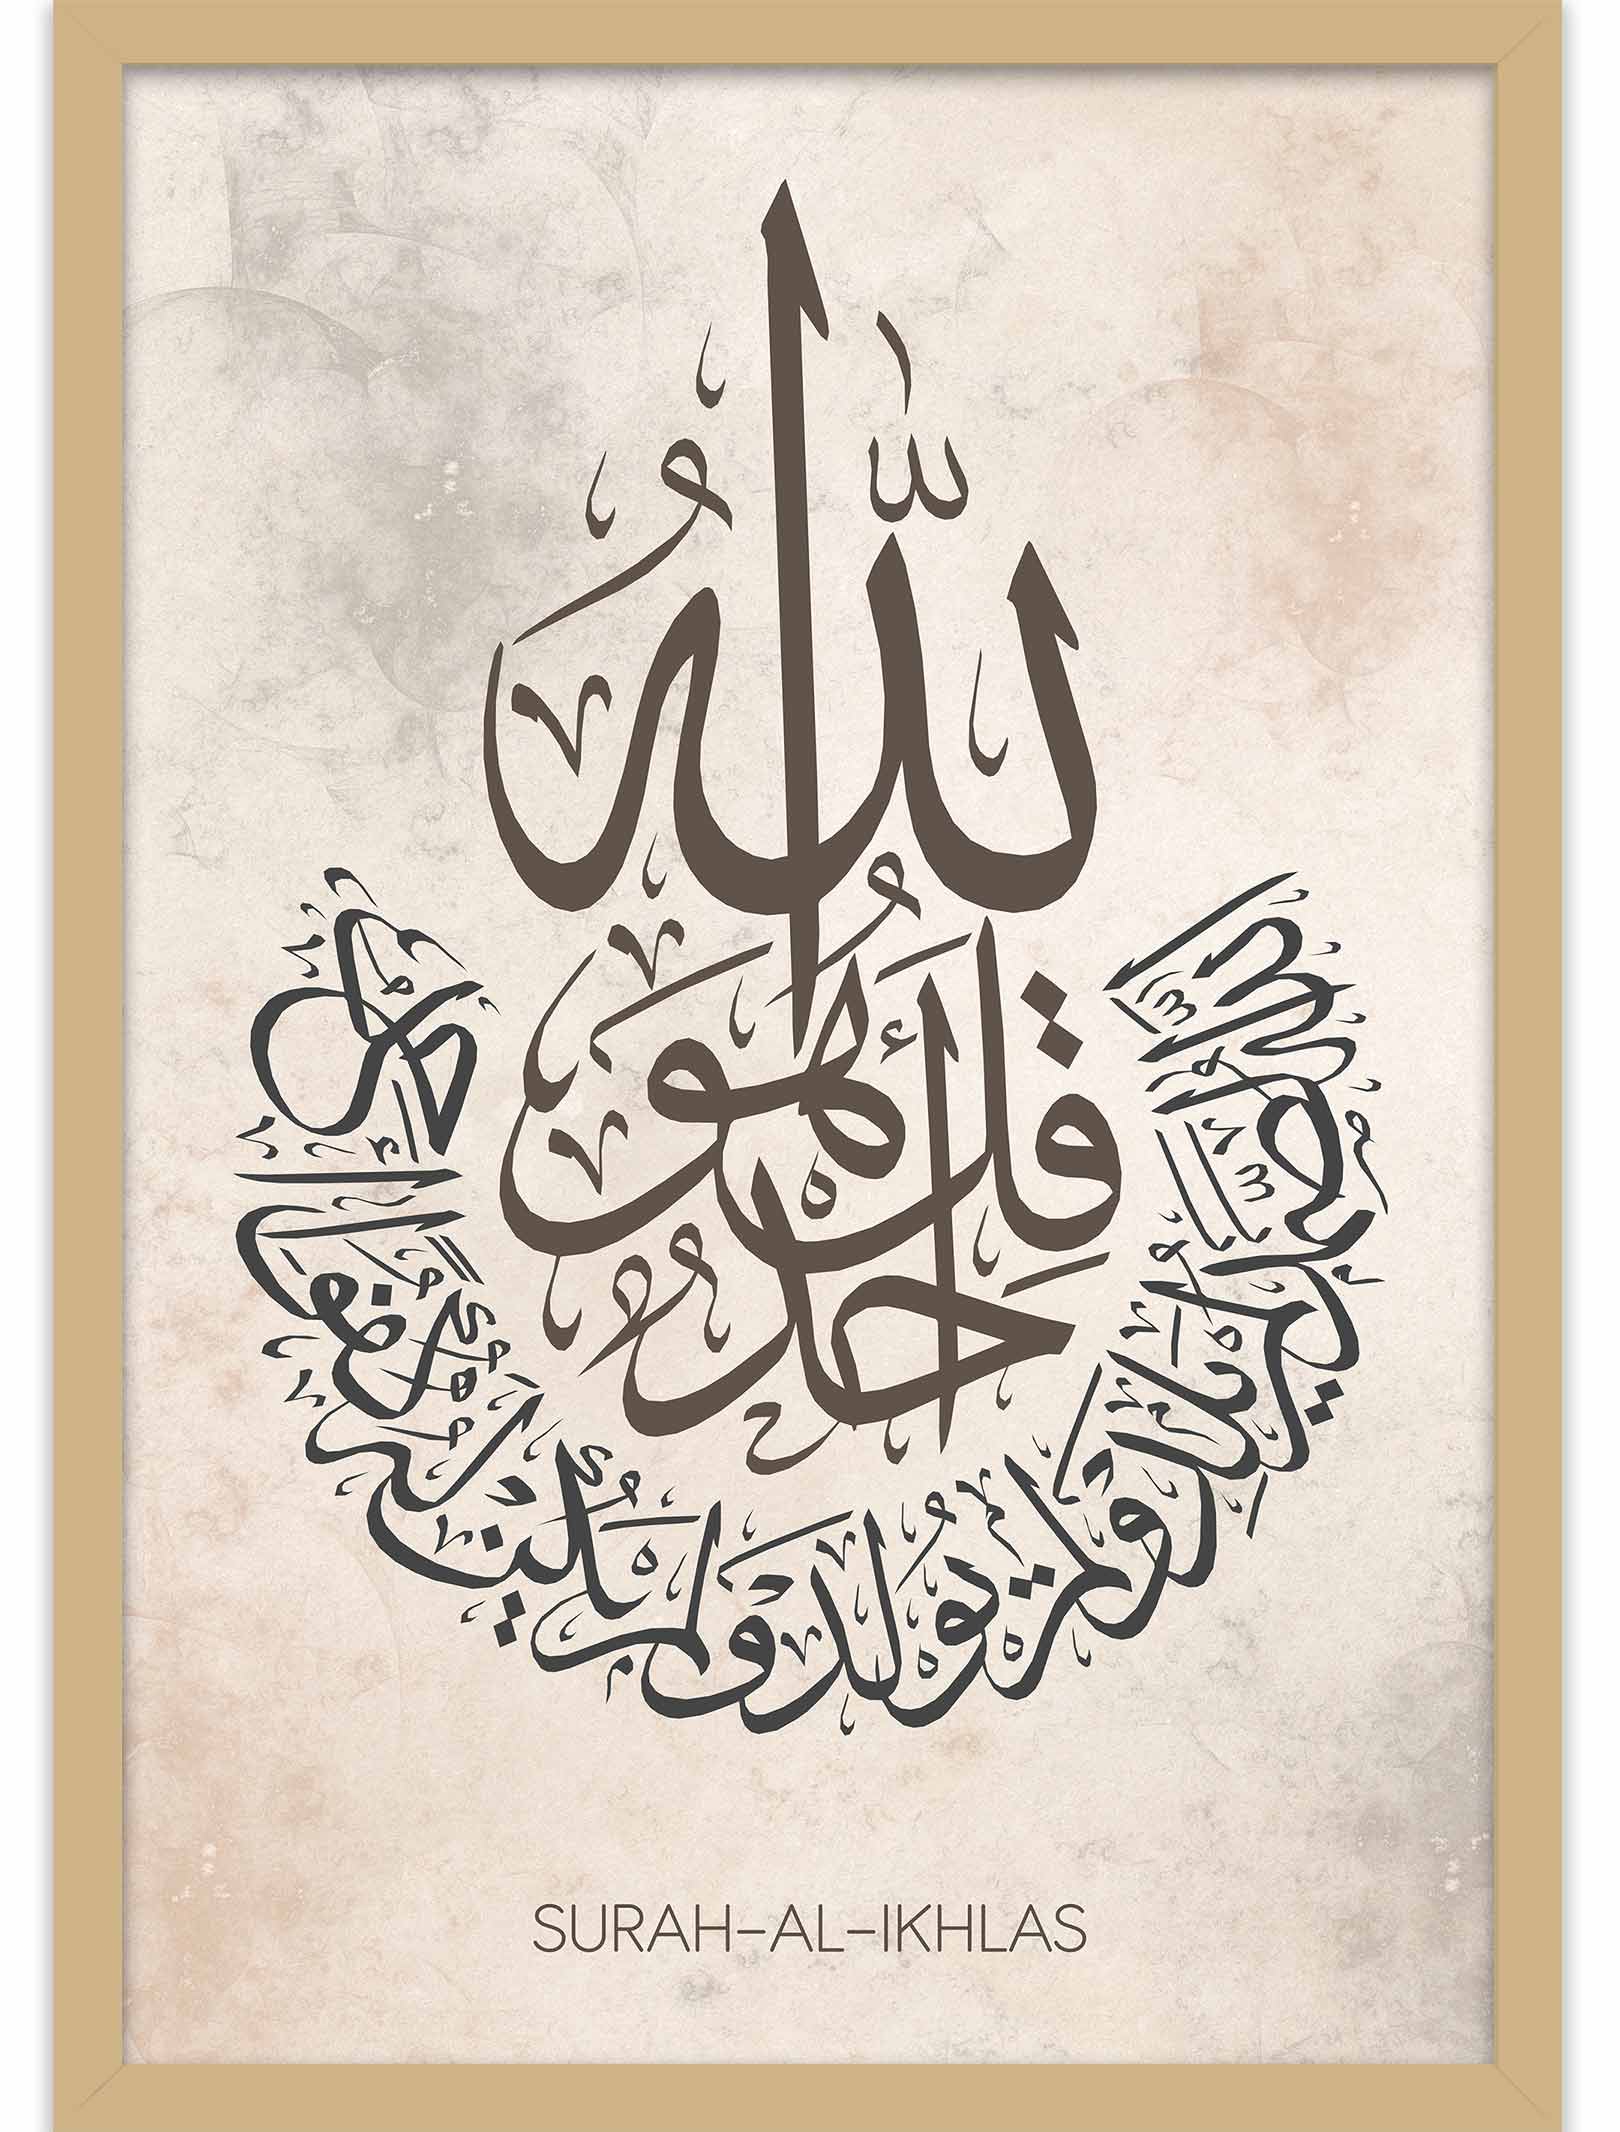 قُلْ هُوَ اللّٰهُ أَحَدٌ
اللّٰهُ الصَّمَدُ لَمْ يَلِدْ وَلَمْ يُولَدْ وَلَمْ يَكُنْ لَهُ كُفُوًا أَحَدٌ
SURAH-AL-IKHLAS